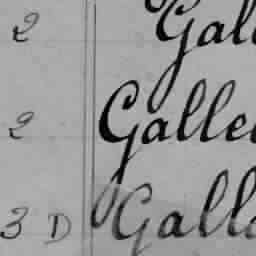 2 Gall
2 Galle
3 D Galla